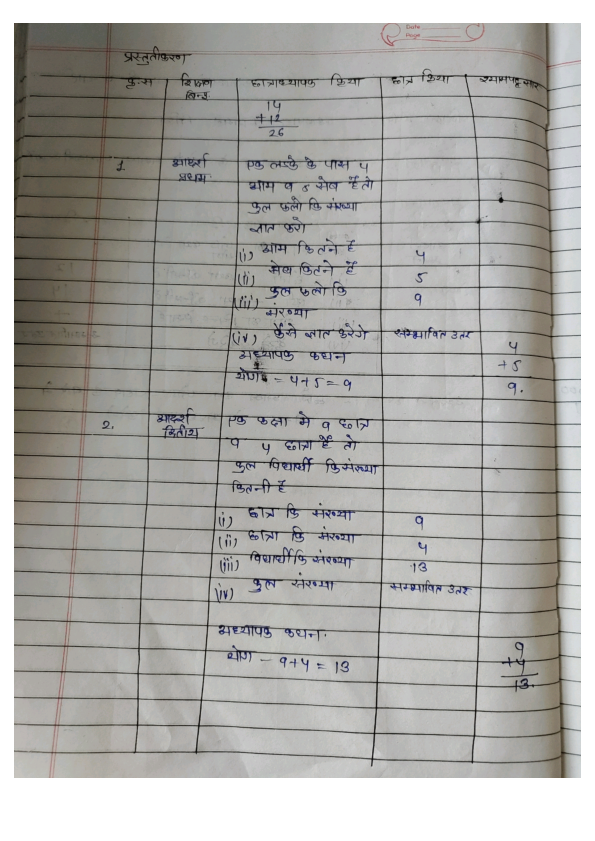 Date
Page
प्रस्तुतीकरण
क्र.स शिक्षण बिन्दु छात्राध्यापक क्रिया छात्र क्रिया श्यामपट्ट सार
14
+12
26
1. आदर्श एक लडके के पास 4
प्रथम. आम व 5 सेब हैं तो
कुल फलो कि संख्या
ज्ञात करो
(i) आम कितने हैं 4
(ii) सेब कितने हैं 5
(iii) कुल फलो कि 9
संख्या
(iv) कैसे ज्ञात करेंगे सम्भावित उतर 4
अध्यापक कथन +5
योग = 4+5 = 9 9.
2. आदर्श एक कक्षा मे 9 छात्र
द्वितीय व 4 छात्रा हैं तो
कुल विद्यार्थी कि संख्या
कितनी हैं
(i) छात्र कि संख्या 9
(ii) छात्रा कि संख्या 4
(iii) विद्यार्थी कि संख्या 13
(iv) कुल संख्या सम्भावित उतर
अध्यापक कथन. 9
योग – 9+4 = 13 +4
13.